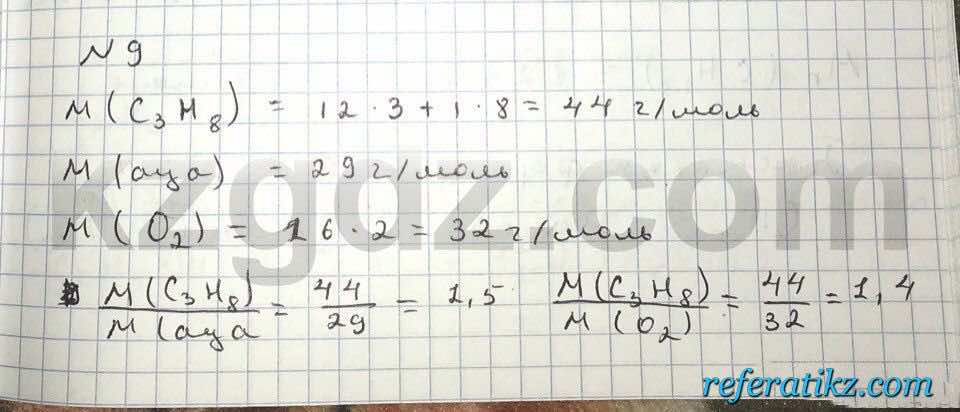 N 9
M(C₃H₈) = 12·3+1·8 = 44 г/моль
M(ауа) = 29 г/моль
M(O₂) = 16·2 = 32 г/моль
M(C₃H₈)/M(ауа = 44/29 = 1,5 M(C₃H₈)/M(O₂) = 44/32 = 1,4
kzgdz.com
referatikz.com